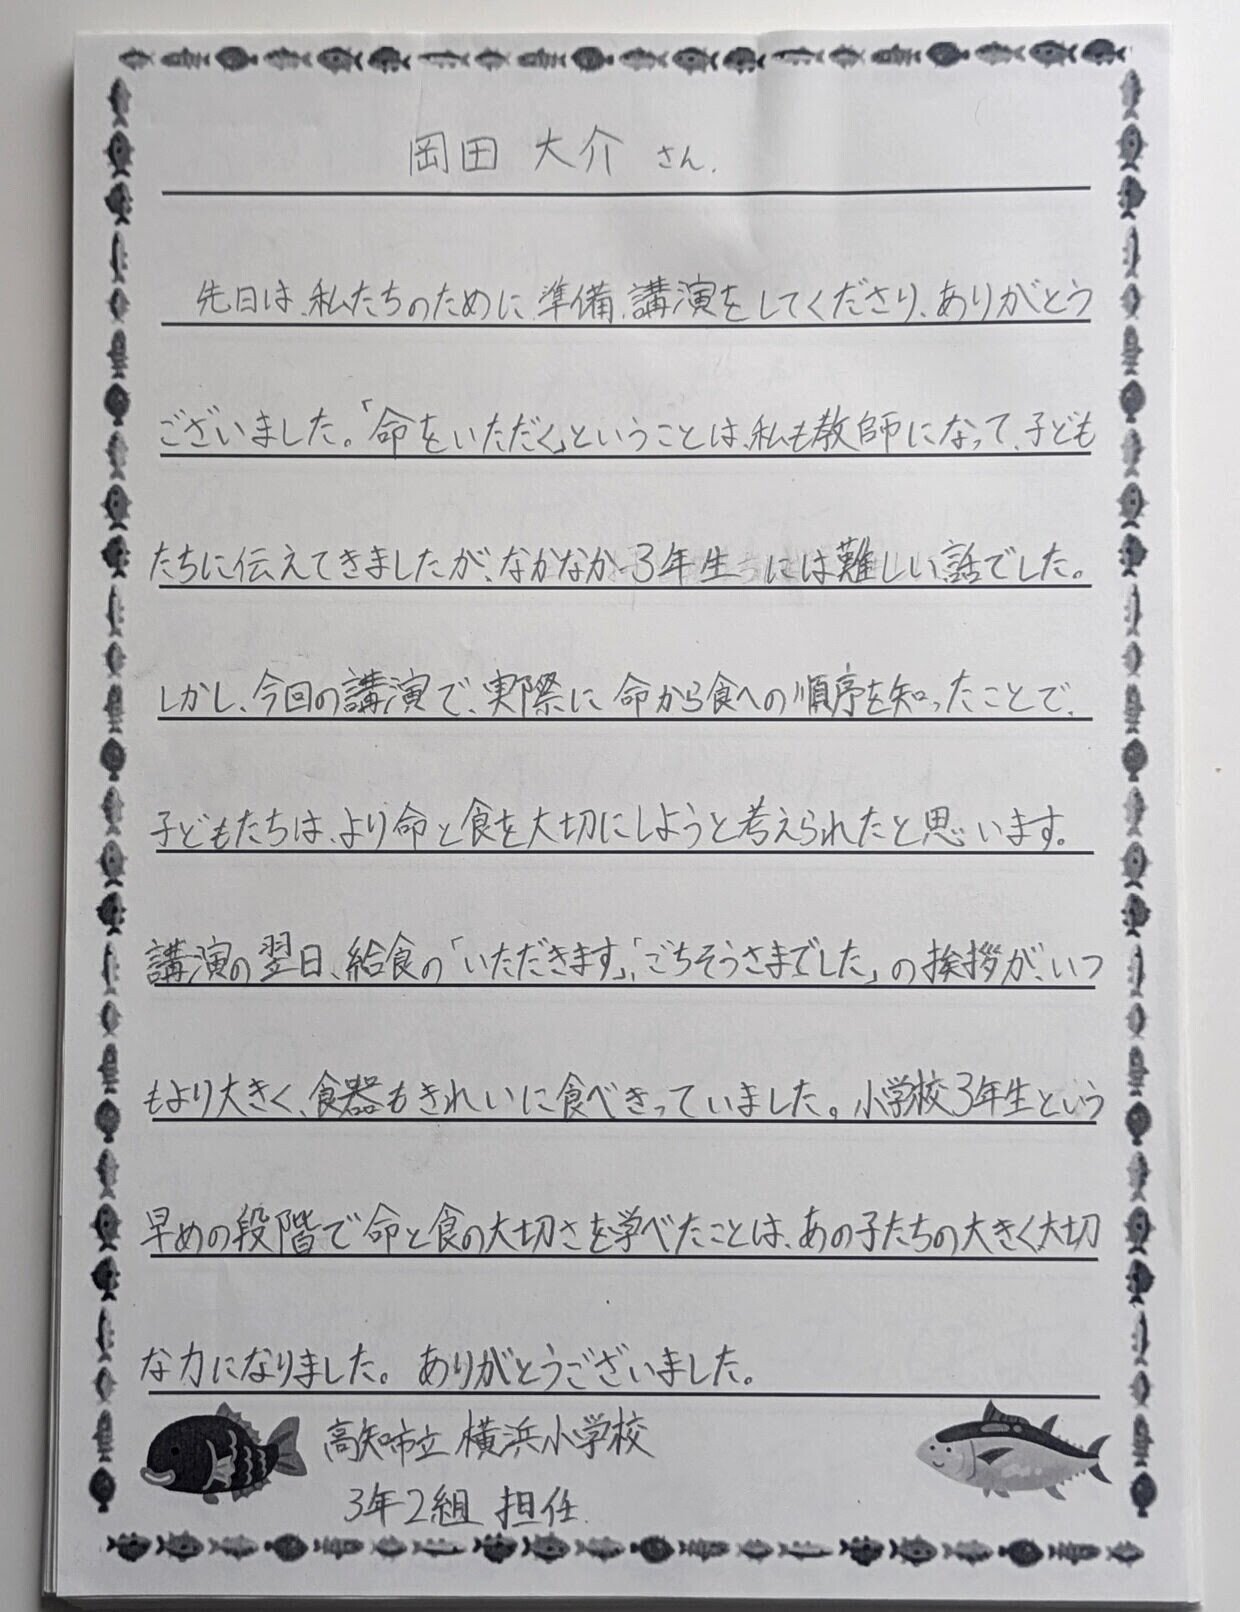 岡田 大介 さん.
先日は、私たちのために準備、講演をしてくださり、ありがとう
ございました。「命をいただく」ということは、私も教師になって、子ども
たちに伝えてきましたが、なかなか3年生には難しい話でした。
しかし、今回の講演で、実際に命から食への順序を知ったことで、
子どもたちは、より命と食を大切にしようと考えられたと思います。
講演の翌日、給食の「いただきます」、「ごちそうさまでした」の挨拶が、いつ
もより大きく、食器もきれいに食べきっていました。小学校3年生という
早めの段階で命と食の大切さを学べたことは、あの子たちの大きく大切
な力になりました。ありがとうございました。
高知市立 横浜小学校
3年2組 担任.